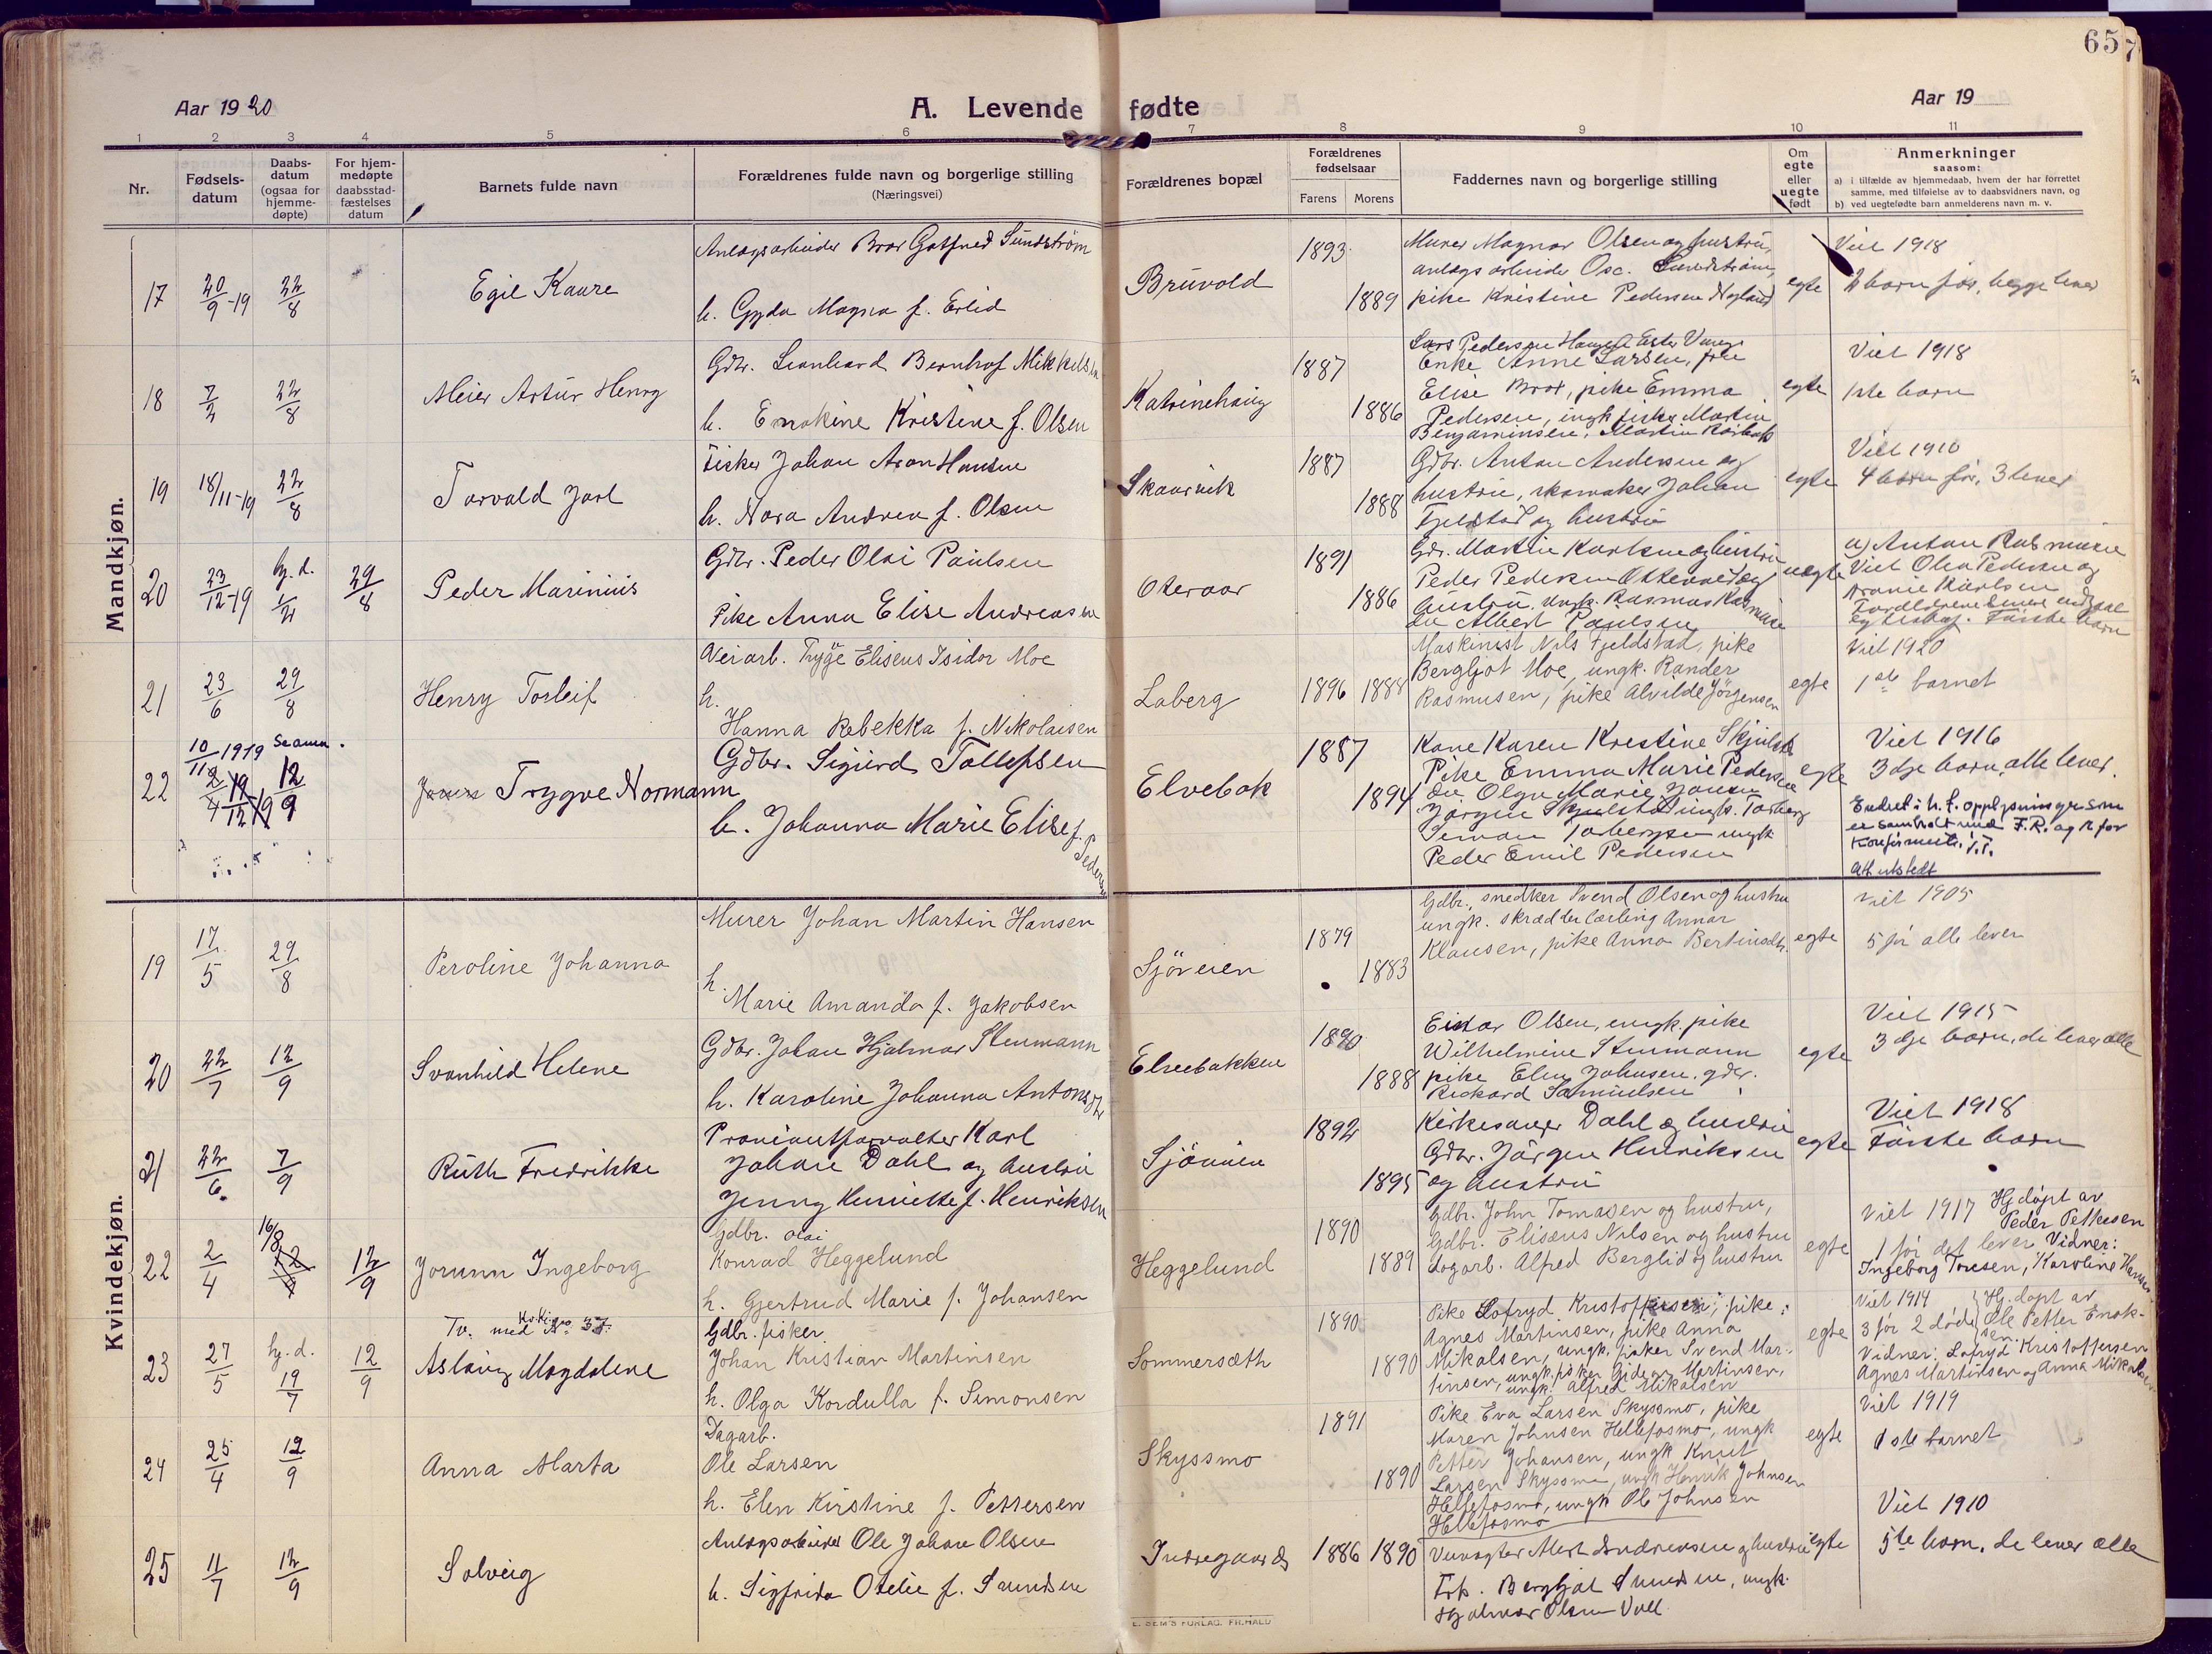 65
7
Aar 1920
A. Levende fødte
Aar 19
1 2 3 4 5 6 7 8 9 10 11
Nr.
Fødsels-
datum
Daabs-
datum
(ogsaa for
hjemme-
døpte)
For hjem-
medøpte
daabsstad-
fæstelses
datum
Barnets fulde navn
Forældrenes fulde navn og borgerlige stilling
(Næringsvei)
Forældrenes bopæl
Forældrenes
fødselsaar
Farens Morens
Faddernes navn og borgerlige stilling
Om
egte
eller
uegte
født
Anmerkninger
saasom:
a) i tilfælde av hjemmedaab, hvem der har forrettet
samme, med tilføielse av to daabsvidners navn, og
b) ved uegtefødte barn anmelderens navn m. v.
Mandkjøn.
17 20/9-19 22/8 Egil Kaare
Anlægsarbeider Bror Gotfred Sundström
h. Gyda Magna f. Erlid
Bruvold
1893
1889
Murer Magnar Olsen og hustru,
anlægsarbeider Osc. Sundström,
pike Kristine Pedersen
egte
Viet 1918
2 barn før, begge lever
18 7/2 22/8 Meier Artur Henry
Gdbr. Leonhard Bernhof Mikkelsen
h. Enokine Kristine f. Olsen
Katrinehaug
1887
1886
Lars Pedersen
Enke Anne Larsen, frue
Elise Brox, pike Emma
Pedersen, ungk. fisker Martin
Benjaminsen, Martin
egte
Viet 1918
1ste barn
19 18/11-19 22/8 Torvald Jarl
Fisker Johan Aron Hansen
h. Nora Andrea f. Olsen
Skaarvik
1887
1888
Gdbr. Anton Andersen og
hustru, skomaker Johan
Fjeldstad og hustru
egte
Viet 1910
4 barn før, 3 lever
20 23/12-19 hj. d. 1/2 29/8 Peder Marinius
Gdbr. Peder Olai Paulsen
Pike Anna Elise Andreasen
Oteraar
1891
1886
Gdr. Martin Karlsen og hustru
Peder Pedersen og
hustru. Ungk. Rasmus Rasmussen
do Albert Paulsen
uegte
a) Anton Rasmussen
Vidt Olea Pedersen og
Karlsen
Første barn
21 23/6 29/8 Henry Torleif
Veiarb. Tryge Eliseus Isidor Moe
h.
Hanna Rebekka f. Nikolaisen
Laberg
1896 1888
Maskinist Nils Fjeldstad, pike
Bergljot Moe, ungk. Rander
Rasmusen, pike Alvilde Jørgensen
egte
Viet 1920
1ste barnet
22 10/11 1919 12/9 Trygve Normann
Gdbr. Sigurd Tollefsen
h. Johanna Marie Elise f. Pedersen
Elvebak
1887
1894
Kone Karen Kristine Skjulstad
Pike Emma Marie Pedersen
do Olga Marie Jansen
Jørgen Skjulstad ungk. Torberg
Simon Torbergsen ungk
Peder Emil Pedersen
egte
Viet 1916
3dje barn, alle lever.
Endret i h. t. opplysninger som
er samholdt med F.R. og kl for
Konfirmerte.
Att. utstedt
Kvindekjøn.
19 17/5 29/8 Peroline Johanna
Murer Johan Martin Hansen
h.
Marie Amanda f. Jakobsen
Sjöveien
1879
1883
Gdbr., snedker Svend Olsen og hustru
ungk. skrædderlærling Annar
Klausen, pike Anna Bertinsdtr.
egte
Viet 1905
5 før alle lever
20 22/7 12/9 Svanhild Helene
Gdbr. Johan Hjalmar Stenmann
h. Karoline Johanna Antonsdtr
Elvebakken
1890
1888
Einar Olsen, ungk. pike
Wilhelmine Stenmann
pike Elen Johnsen, gdbr.
Rickard Samuelsen
egte
Viet 1915
3dje barn, de lever alle
21 22/6 7/9 Ruth Fredrikke
Proviantforvalter Karl
Johan Dahl og hustru
Jenny Henriette f. Henriksen
Sjöveien
1892
1895
Kirkesanger Dahl og hustru
Gdbr. Jørgen Henriksen
og hustru
egte
Viet 1918
Første barn
22 2/4 16/8 12/9 Jorunn Ingeborg
Gdbr. Olai
Konrad Heggelund
h. Gjertrud Marie f. Johansen
Heggelund
1890
1889
Gdbr. John Tomasen og hustru,
Gdbr. Eliseus Nilsen og hustru
Dagarb. Alfred Berglid og hustru
egte
Viet 1917 Hj.døpt av
Peder Pettersen
1 før det lever Vidner:
Ingeborg Tonesen, Karoline Hansen
23 27/5 hj. d. 19/7 12/9
Tv. med Kv.kj. No 37
Aslaug Magdalene
Gdbr. fisker
Johan Kristian Martinsen
h. Olga Kordulla f. Simonsen
Sommersæth
1890
1890
Pike Lofryd Kristoffersen, pike
Agnes Martinsen, pike Anna
Mikalsen, ungk. fisker Svend Mar-
tinsen, ungk. fisker Gideon Martinsen,
ungk. Alfred Mikalsen
egte
Viet 1914 Hj. døpt av
3 før 2 døde Ole Petter Enok-
sen.
Vidner: Lofryd Kristoffersen
Agnes Martinsen og Anna Mikalsen
24 25/4 12/9 Anna Marta
Dagarb.
Ole Larsen
h. Elen Kirstine f. Pettersen
Skyssmo
1891
1890
Pike Eva Larsen Skyssmo, pike
Maren Johnsen Hellefosmo, ungk
Petter Johansen, ungk Knut
Larsen Skyssmo, ungk Henrik Johnsen
Hellefosmo, ungk Ole Johnsen
Hellefosmo
egte
Viet 1919
1ste barnet
25 11/7 12/9 Solveig
Anlægsarbeider Ole Johan Olsen
h. Sigfrida Otelie f. Svendsen
Indregaard
1886 1890
Vunagter Andreassen og hustru
Frk. Bergljot Svendsen, ungk.
Hjalmar Olsen Voll
egte
Viet 1910
5te barn, de lever alle
E. SEM'S FORLAG, FR.HALD